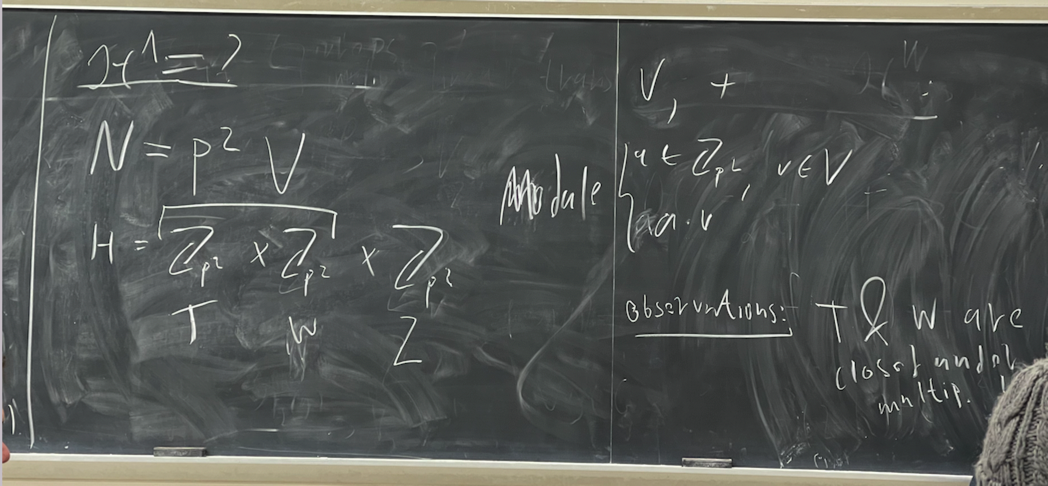 N = p² V
H = ℤ_p² × ℤ_p² × ℤ_p²
T W Z
Module
V, +
a ∈ ℤ_p², v ∈ V
a · v
observations: T & W are
closed under
multip.